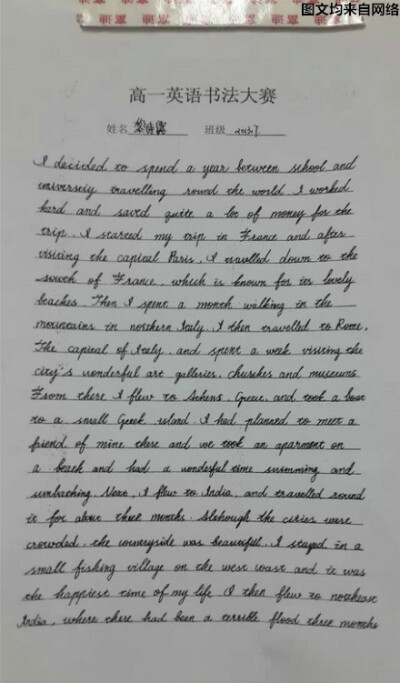 图文均来自网络
高一英语书法大赛
姓名 黎诗露 班级
I decided to spend a year between school and
university travelling round the world. I worked
hard and saved quite a lot of money for the
trip. I started my trip in France and after
visiting the capital Paris, I travelled down to the
south of France, which is known for its lovely
beaches. Then I spent a month walking in the
mountains in northern Italy. I then travelled to Rome,
The capital of Italy, and spent a week visiting the
city's wonderful art galleries, churches and museums
From there I flew to Athens, Greece, and took a boat
to a small Greek island. I had planned to meet a
friend of mine there and we took an aparment on
a beach and had a wonderful time swimming and
sunbathing Next, I flew to India, and travelled round
it for about three months. Although the cities were
crowded, the countryside was beautiful. I stayed in a
small fishing village on the west coast and it was
the happiest time of my life. I then flew to northeast
India, where there had been a terrible flood three months